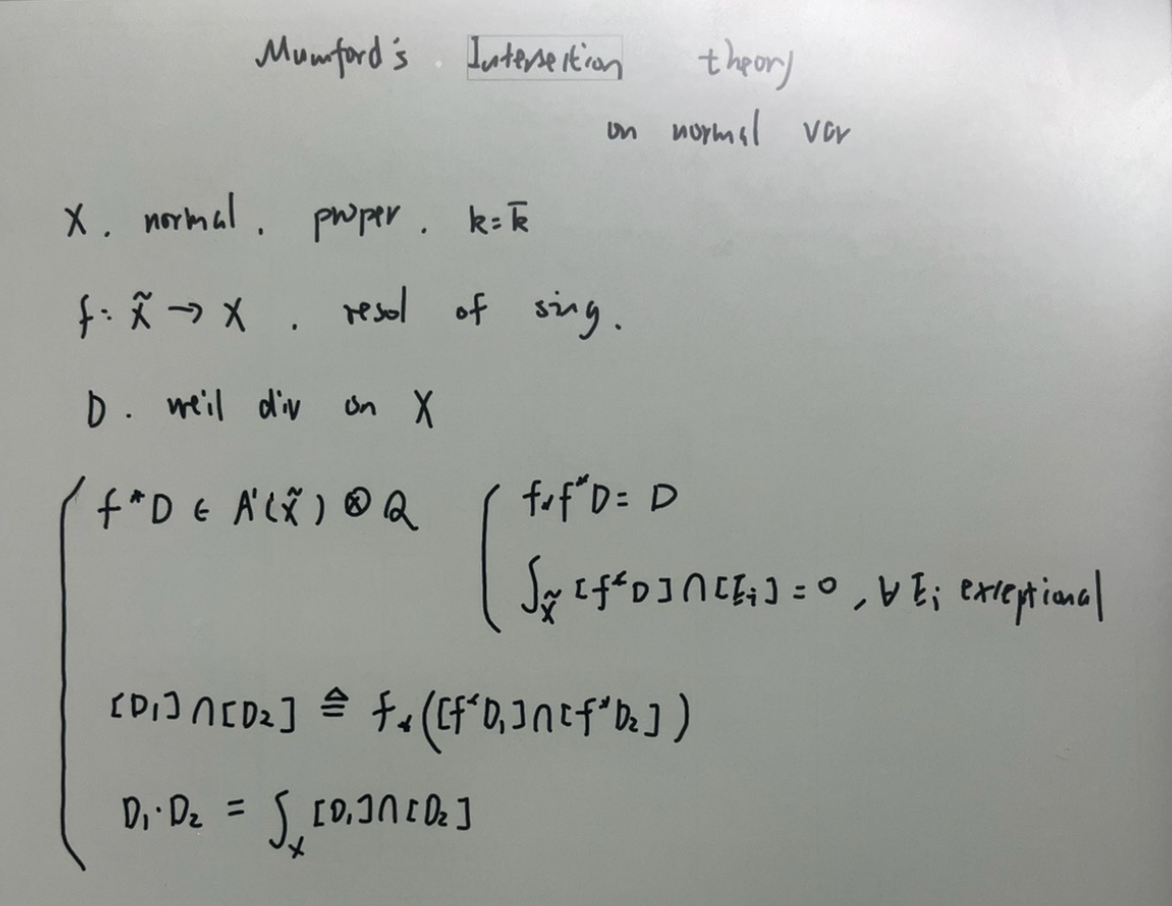 Mumford's Intersection theory
on normal var
X. normal. proper. k=k̄
f: X̃ → X. resol of sing.
D. weil div on X
f*D ∈ A¹(X̃) ⊗ Q
f_*f*D = D
∫_X̃ [f*D]∩[E_i] = 0, ∀ E_i exceptional
[D₁]∩[D₂] ≙ f_*([f*D₁]∩[f*D₂])
D₁·D₂ = ∫_X [D₁]∩[D₂]